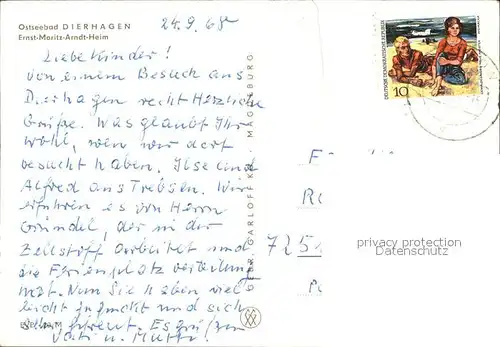 Ostseebad DIERHAGEN
Ernst-Moritz-Arndt-Heim
24.9.68
Liebe Kinder!
Von einem Besuch aus
Dierhagen recht Herzliche
Grüße. Was glaubt Ihr
wohl, wen wir dort
besucht haben. Ilse und
Alfred aus Trebsen. Wir
erfuhren es von Herrn
Gründel, der in der
Zellstoff arbeitet und
die Ferienplatz verteilung
hat. Nun Sie haben viel
leicht geguckt und sich
gefreut. Es grüßen
Vati u. Mutti.
GARLOFF KG. MAGDEBURG
DEUTSCHE DEMOKRATISCHE REPUBLIK
10
725
privacy protection
Datenschutz